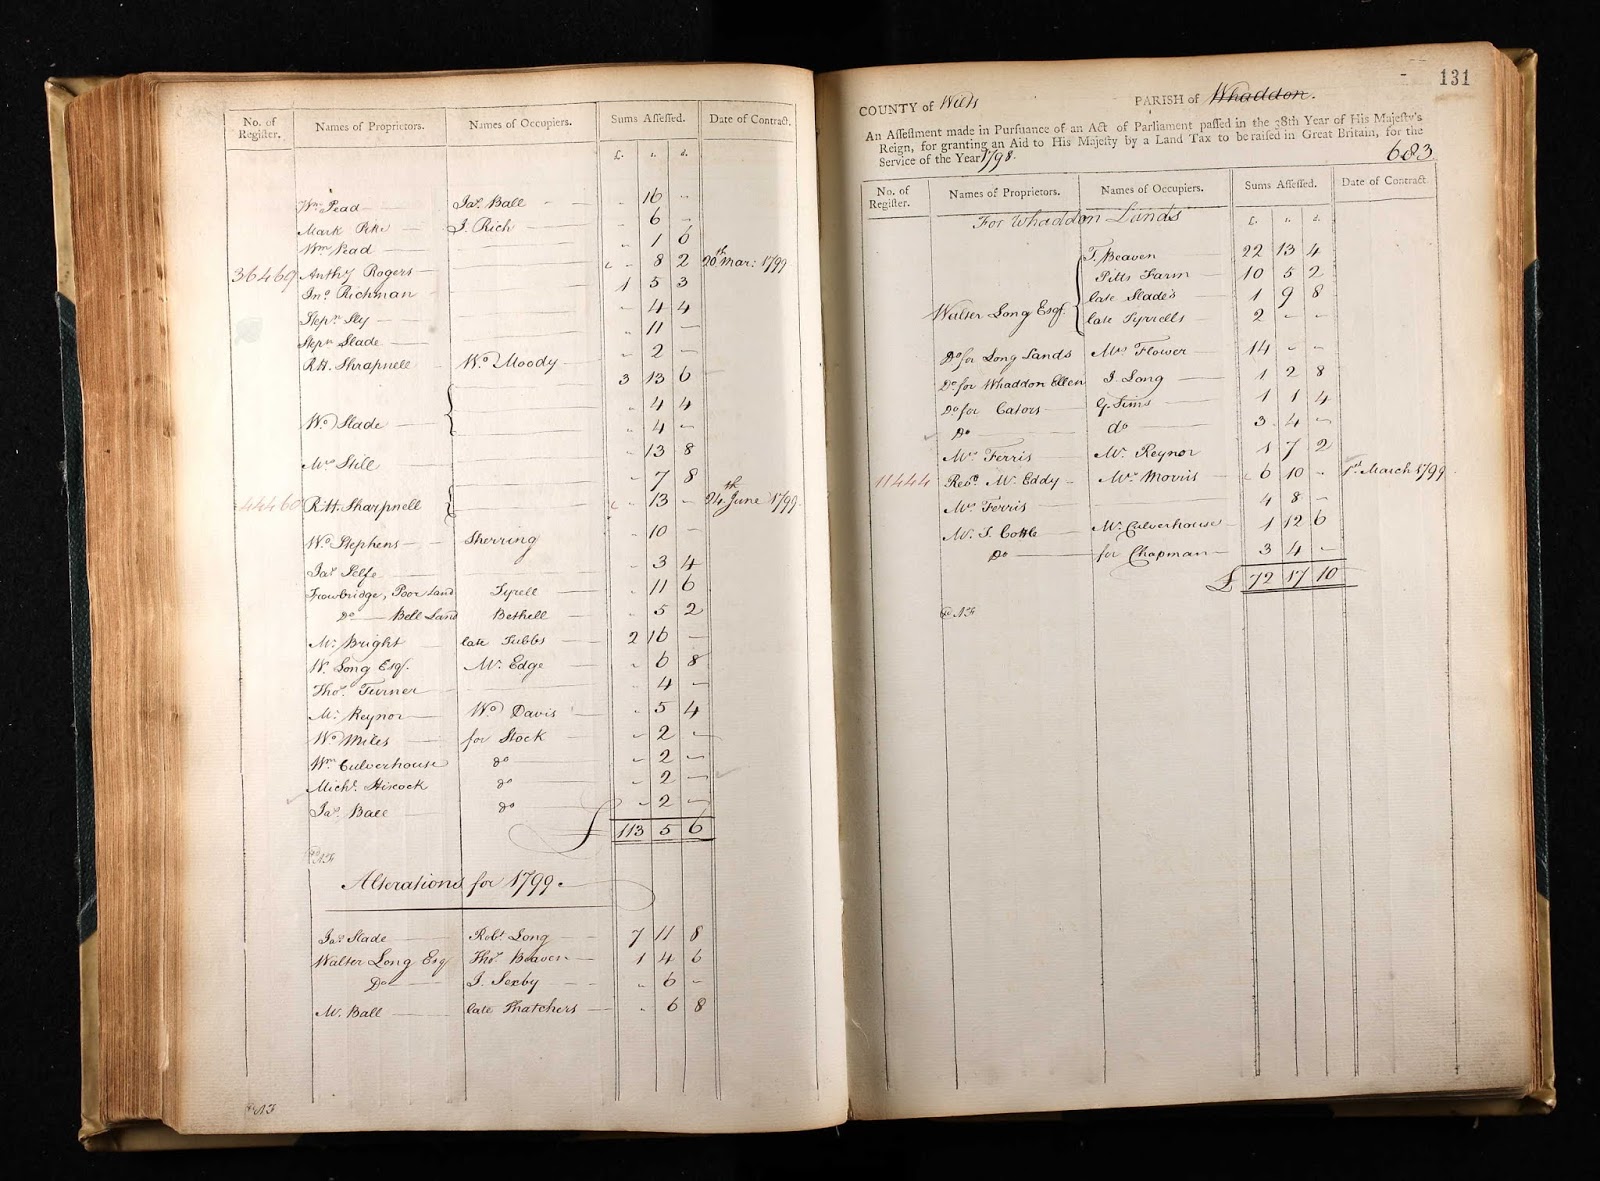 No. of Register. Names of Proprietors. Names of Occupiers. Sums Assessed. Date of Contract.
£. s. d.
Wm. Pead Jas. Ball " 16 "
Mark Pike J. Rich " 6 –
Wm Pead " 1 6
36469 Anthy Rogers " 8 2 20th Mar: 1799
Jno. Richman 1 5 3
Stepn. Sly " 4 4
Stepn Slade " 11 –
R.H. Shrapnell Wo. Moody " 2 –
3 13 6
" 4 4
Wo. Slade " 4 –
Mrs Still " 13 8
" 7 8
44460 R.H. Sharpnell " 13 – 24th June 1799
Wo. Stephens Sherring " 10 –
Jas. Selfe " 3 4
Trowbridge, Poor Land Tyrell " 11 6
Do Bell Land Bethell " 5 2
Mr. Bright late Tubbs 2 16 –
W. Long Esqr. Mr. Edge " 6 8
Thos. Turner " 4 –
Mr. Reynor Wo. Davis " 5 4
Wo Miles for Stock " 2 –
Wm. Culverhouse do " 2 –
Michl. Hiscock do " 2 –
Jas. Ball do " 2 –
£ 113 5 6
Alterations for 1799.
Jas. Slade Robt. Long 7 11 8
Walter Long Esq Thos. Beaven 1 4 6
Do J. Sexby " 6 –
Mr. Ball late Thatchers " 6 8
131
COUNTY of Wilts PARISH of Whaddon.
An Assessment made in Pursuance of an Act of Parliament passed in the 38th Year of His Majesty's
Reign, for granting an Aid to His Majesty by a Land Tax to be raised in Great Britain, for the
Service of the Year 1798. 683
No. of Register. Names of Proprietors. Names of Occupiers. Sums Assessed. Date of Contract
For Whaddon Lands £. s. d.
T. Beaven 22 13 4
Pitts Farm 10 5 2
late Slade's 1 9 8
Walter Long Esqr. late Tyrrells 2 – –
Do for Long Lands Mrs Flower 14 – –
Do. for Whaddon Ellen J. Long 1 2 8
Do for Cators G. Sims 1 1 4
Do do 3 4 –
Mrs Ferris Mr. Reynor 1 7 2
11444 Revd. Mr. Eddy Mrs Morris 6 10 – 1st March 1799
Mrs Ferris 4 8 –
Mr. T. Cottle Mr. Culverhouse 1 12 6
Do for Chapman 3 4 –
£ 72 17 10